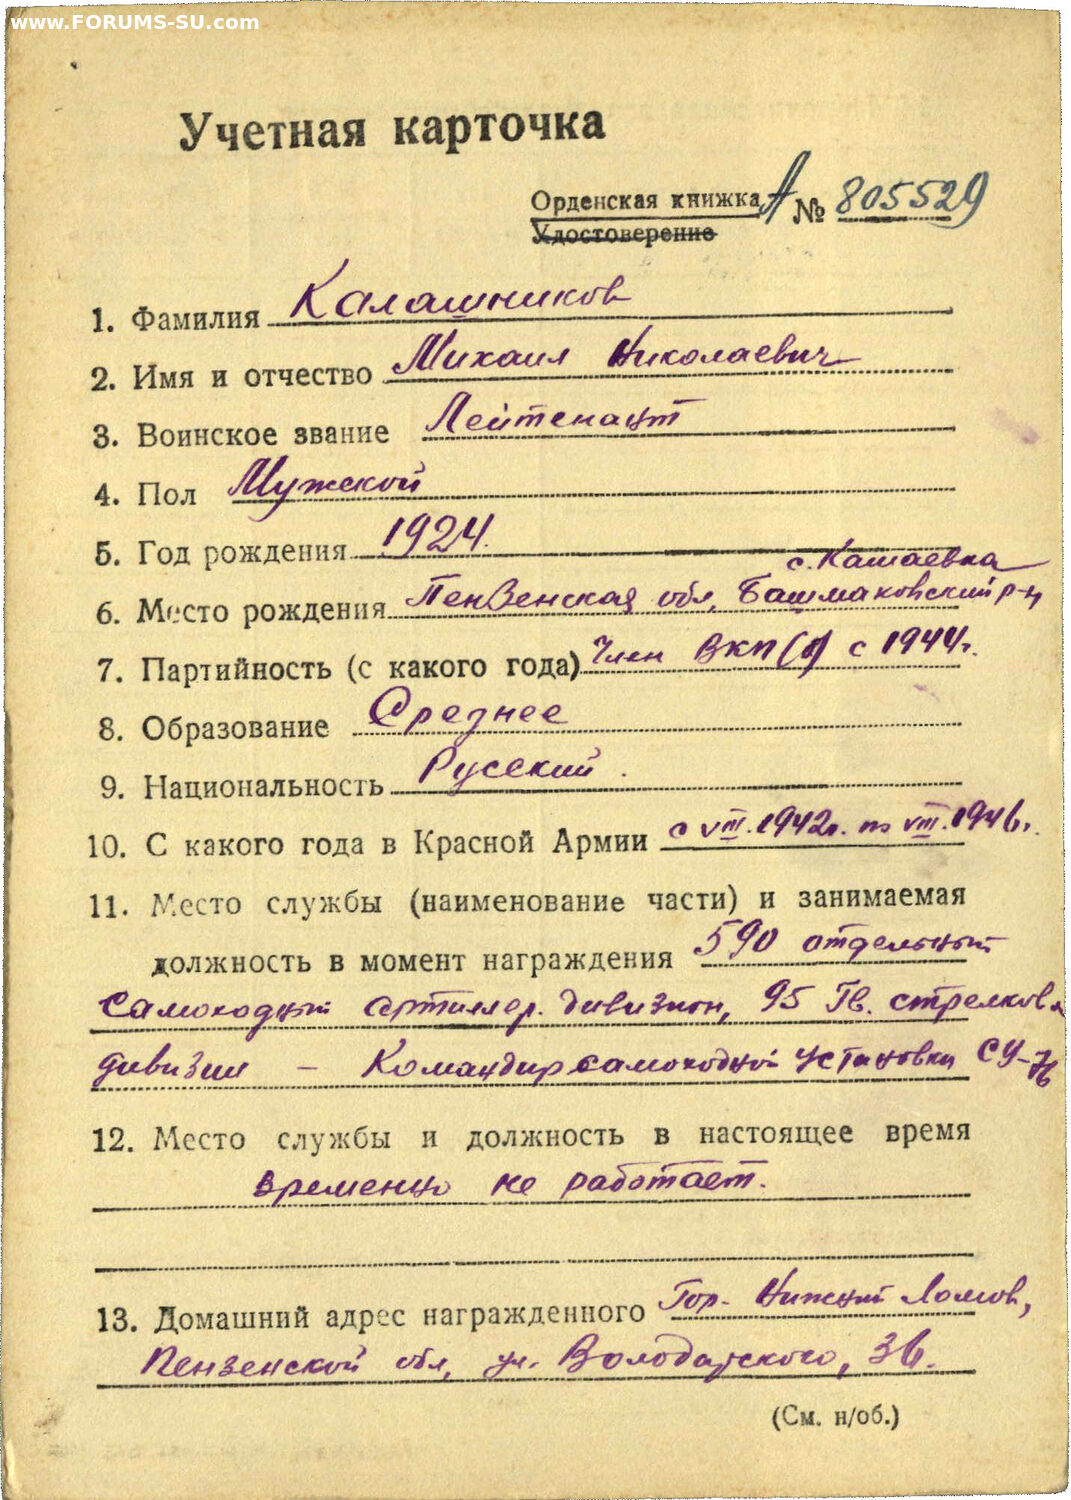 www.FORUMS-SU.com
Учетная карточка
Орденская книжка А № 805529
Удостоверение
1. Фамилия Калашников
2. Имя и отчество Михаил Николаевич
3. Воинское звание Лейтенант
4. Пол Мужской
5. Год рождения 1924.
с. Кашаевка
6. Место рождения Пензенская обл, Башмаковский р-н
7. Партийность (с какого года) Член ВКП(б) с 1944г.
8. Образование Среднее
9. Национальность Русский.
10. С какого года в Красной Армии с VIII.1942г. по VIII.1946г.
11. Место службы (наименование части) и занимаемая
должность в момент награждения 590 отдельный
самоходный артиллер. дивизион, 95 Гв. стрелков.
дивизии — Командир самоходной установки СУ-76
12. Место службы и должность в настоящее время
временно не работает.
13. Домашний адрес награжденного Гор. Нижний Ломов,
Пензенской обл, ул. Володарского, 36.
(См. н/об.)